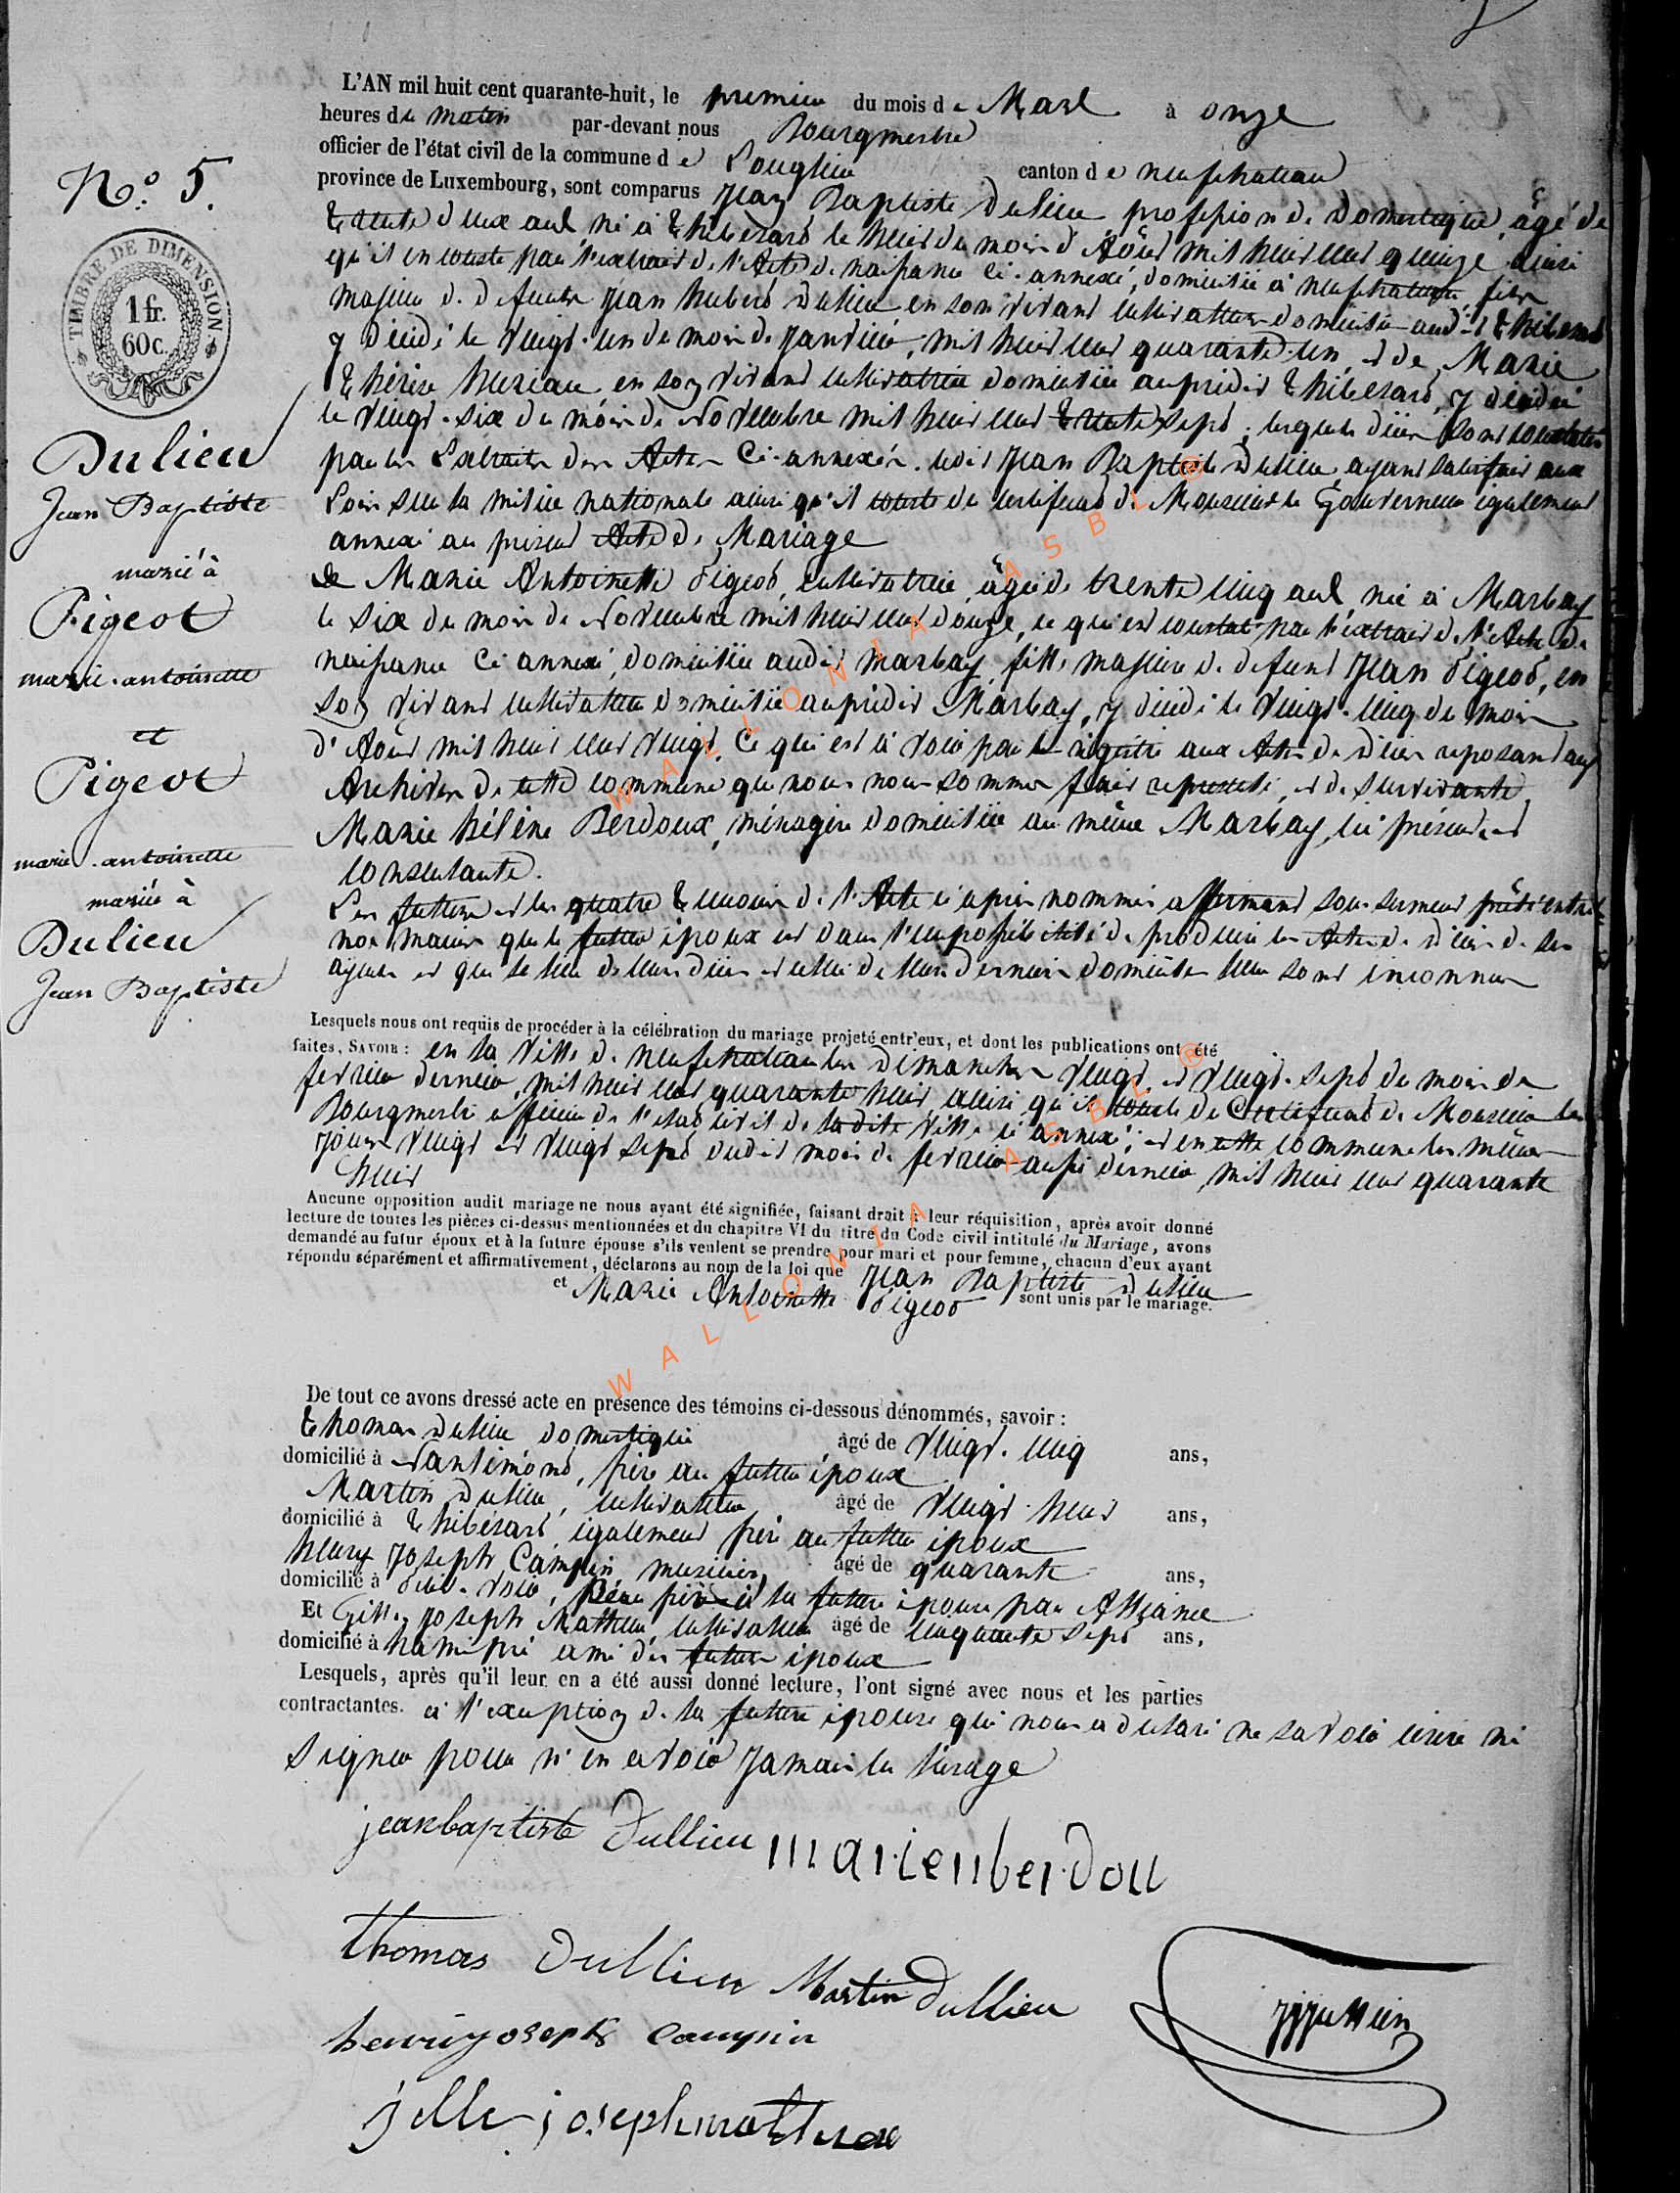 N.° 5.
TIMBRE DE DIMENSION
1 fr.
60 c.
Dulieu
Jean Baptiste
marié à
Pigeot
marie-antoinette
et
Pigeot
marie-antoinette
mariée à
Dulieu
Jean Baptiste
L'AN mil huit cent quarante-huit, le premier du mois de Mars à onze
heures du matin par-devant nous Bourgmestre
officier de l'état civil de la commune de Longlier canton de neufchateau
province de Luxembourg, sont comparus Jean Baptiste Dulieu profession de Domestique, âgé de
trente deux ans, né à Thibessard le huit du mois d'Août mil huit cent quinze ainsi
qu'il en conste par l'extrait de l'Acte de naissance ci-annexé, domicilié à neufchateau, fils
majeur de defunts Jean hubert Dulieu en son vivant cultivateur domicilié audit Thibessard
y décédé le vingt-un du mois de Janvier, mil huit cent quarante-un, et de Marie
Thérèse en son vivant cultivatrice domiciliée au prédit Thibessard, y décédée
le vingt-six du mois de Novembre mil huit cent trente sept; lesquels décès sont constatés
par les Extraits des Actes Ci-annexés. ledit Jean Baptiste Dulieu ayant satisfait aux
Lois sur la milice nationale ainsi qu'il conste du certificat de Monsieur le Gouverneur également
annexé au présent Acte de Mariage
Marie Antoinette Pigeot, cultivatrice, âgée de trente cinq ans, née à Marbay
le six du mois de Novembre mil huit cent douze, ce qui est constaté par l'extrait de l'Acte de
naissance ci annexé, domiciliée audit marbay, fille majeure de defunt Jean Pigeot, en
son vivant cultivateur domicilié au prédit Marbay, y décédé le vingt-cinq du mois
d'Août mil huit cent vingt, Ce qui est à voir par le régistre aux Actes de décès reposant aux
Archives de cette commune que nous nous sommes fait représenté, et de survivante
Marie hélène Berdoux, ménagère domiciliée au même Marbay, ici présente et
consentante.
Les futurs et les quatre témoins de l'Acte ci après nommés affirmant sous serment prêté entre
nos mains que le futur époux est dans l'impossibilité de produire les Actes de décès de ses
ayeuls et que le lieu de leurs décès et celui de leurs derniers domiciles leur sont inconnus
Lesquels nous ont requis de procéder à la célébration du mariage projeté entr'eux, et dont les publications ont été
faites, SAVOIR: en la ville de neufchateau les dimanches vingt, et vingt-sept du mois de
fevrier dernier, mil huit cent quarante huit ainsi qu'il conste du Certificat de Monsieur le
Bourgmestre officier de l'etat civil de la dite ville ci annexé; et en cette commune les mêmes
jours vingt et vingt sept dudit mois de fevrier aussi dernier, mil huit cent quarante
huit
Aucune opposition audit mariage ne nous ayant été signifiée, faisant droit à leur réquisition, après avoir donné
lecture de toutes les pièces ci-dessus mentionnées et du chapitre VI du titre du Code civil intitulé du Mariage, avons
demandé au futur époux et à la future épouse s'ils veulent se prendre pour mari et pour femme, chacun d'eux ayant
répondu séparément et affirmativement, déclarons au nom de la loi que Jean Baptiste Dulieu
et Marie Antoinette Pigeot sont unis par le mariage.
De tout ce avons dressé acte en présence des témoins ci-dessous dénommés, savoir:
Thomas Dulieu domestique âgé de vingt-cinq ans,
domicilié à Nantimont, frère au futur époux
Martin Dulieu, cultivateur âgé de vingt-huit ans,
domicilié à Thibésart également frère au futur époux
henry Joseph Campin, musicien, âgé de quarante ans,
domicilié à beau frère à la future épouse par Alliance
Et Gille Joseph Mathieu cultivateur âgé de cinquante sept ans,
domicilié à hamipré ami des futurs époux
Lesquels, après qu'il leur en a été aussi donné lecture, l'ont signé avec nous et les parties
contractantes. à l'exception de la future épouse qui nous a déclaré ne savoir écrire ni
signer pour n'en avoir jamais eu l'usage
jeanbaptiste Dullieu marienberdou
thomas Dullieu Martin Dullieu
henriyoseph campin
jelle josephmathieu
WALLONIA ASBL ®
WALLONIA ASBL ®